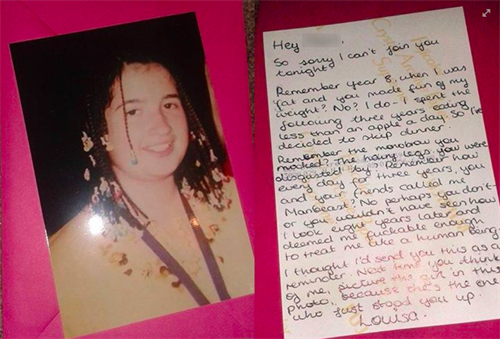 Hey
So sorry I can't join you
tonight
Remember Year 8, when I was
fat and you made fun of my
weight? No? I do - I spent the
following three years eating
less than an apple a day. So I've
decided to skip dinner.
Remember the monobrow you
mocked? The hairy legs you were
disgusted by? Remember how
every day for three years, you
and your friends called me
Manbeast? No perhaps you don't
or you wouldn't have seen how
I look eight years later and
deemed me fuckable enough
to treat me like a human being.
I thought I'd send you this as a
reminder. Next time you think
of me, picture the girl in this
photo, because she's the one
who just stood you up.
Louisa.